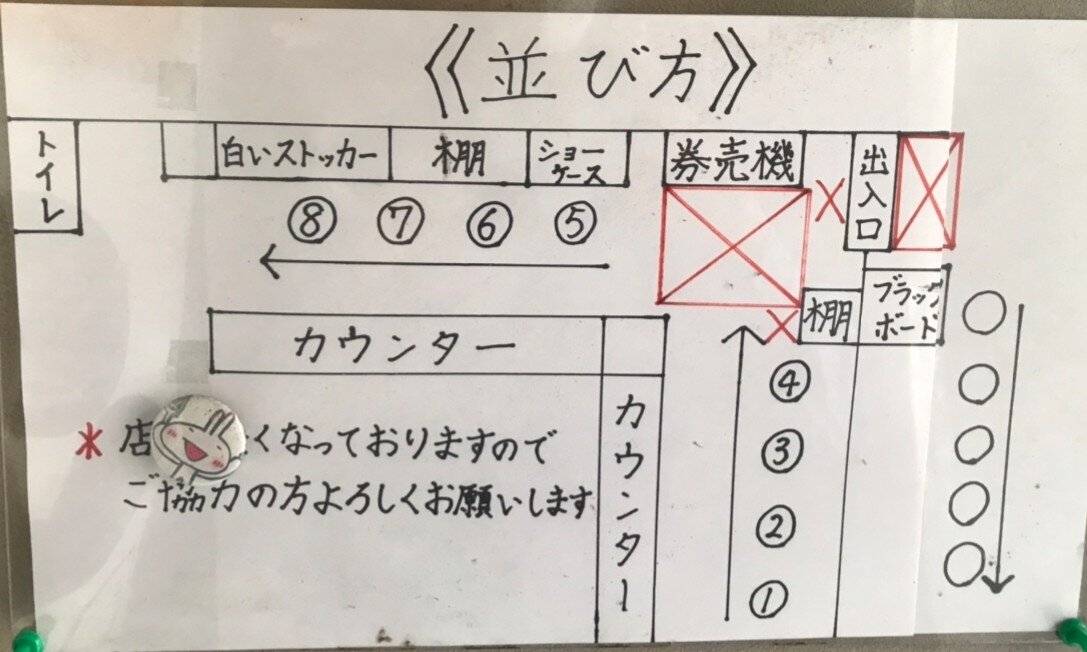 《並び方》
トイレ
白いストッカー
棚
ショー
ケース
券売機
出入口
ブラック
ボード
棚
⑧ ⑦ ⑥ ⑤
カウンター
カウンター
④
③
②
①
* 店 くなっておりますので
ご協力の方よろしくお願いします